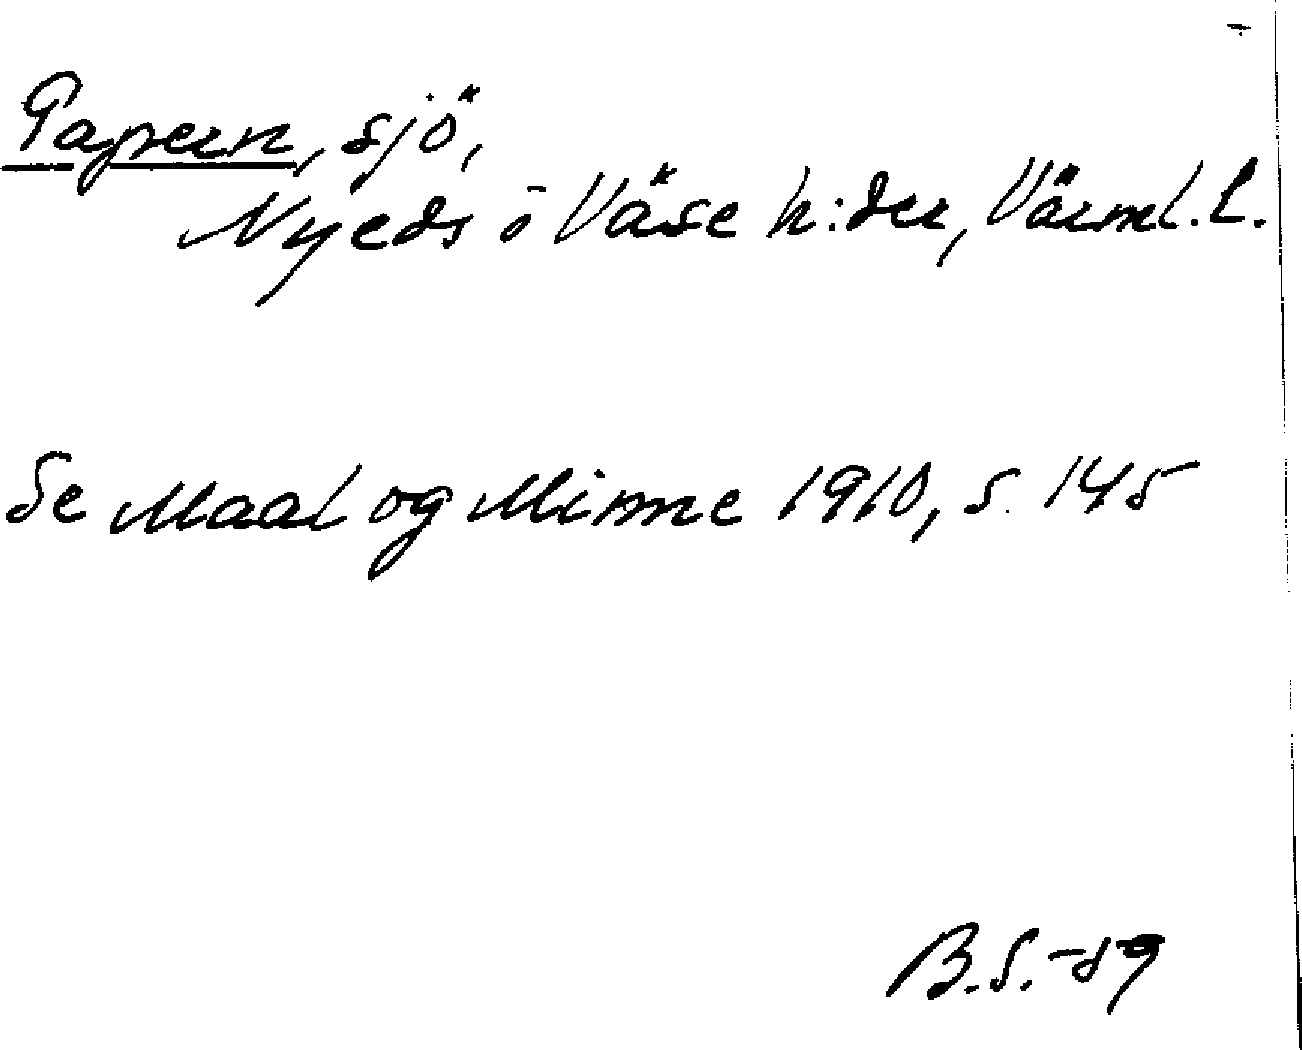 Papern, sjö,
Nyeds o Väse h:der, Värml. l.
Se Maal og Minne 1910, s. 145
B.S. -89